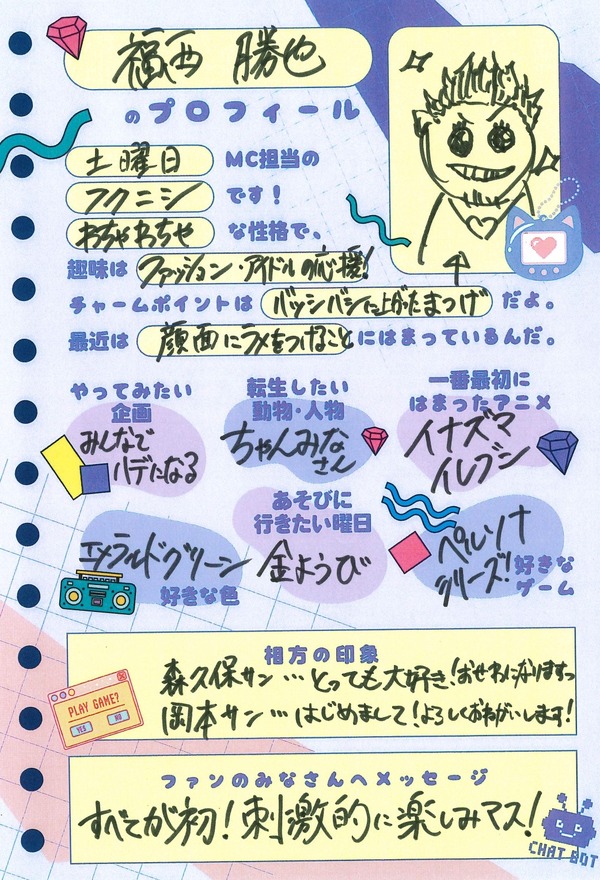 福西 勝也
のプロフィール
土曜日 MC担当の
フクニシ です！
わちゃわちゃ な性格で、
趣味は ファッション・アイドルの応援！
チャームポイントは バッシバシに上がたまつげ だよ。
最近は 顔面にラメをつけること にはまっているんだ。
やってみたい
企画
みんなで
ハデになる
転生したい
動物・人物
ちゃんみな
さん
一番最初に
はまったアニメ
イナズマ
イレブン
エメラルドグリーン
好きな色
あそびに
行きたい曜日
金ようび
ペルソナ
シリーズ！
好きな
ゲーム
相方の印象
森久保サン…とっても大好き！おせわになりますっ
岡本サン…はじめまして！よろしくおねがいします！
PLAY GAME?
YES NO
ファンのみなさんへメッセージ
すべてが初！刺激的に楽しみマス！
CHAT BOT